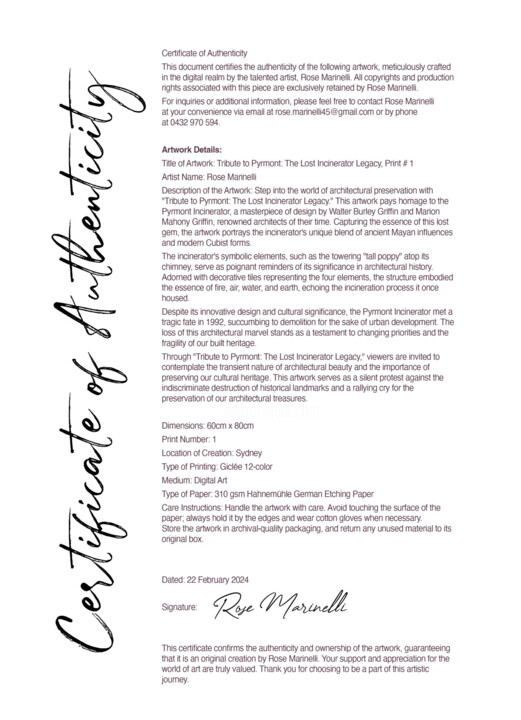 Certificate of Authenticity
Certificate of Authenticity
This document certifies the authenticity of the following artwork, meticulously crafted
in the digital realm by the talented artist, Rose Marinelli. All copyrights and production
rights associated with this piece are exclusively retained by Rose Marinelli.
For inquiries or additional information, please feel free to contact Rose Marinelli
at your convenience via email at rose.marinelli45@gmail.com or by phone
at 0432 970 594.
Artwork Details:
Title of Artwork: Tribute to Pyrmont: The Lost Incinerator Legacy, Print # 1
Artist Name: Rose Marinelli
Description of the Artwork: Step into the world of architectural preservation with
"Tribute to Pyrmont: The Lost Incinerator Legacy." This artwork pays homage to the
Pyrmont Incinerator, a masterpiece of design by Walter Burley Griffin and Marion
Mahony Griffin, renowned architects of their time. Capturing the essence of this lost
gem, the artwork portrays the incinerator's unique blend of ancient Mayan influences
and modern Cubist forms.
The incinerator's symbolic elements, such as the towering "tall poppy" atop its
chimney, serve as poignant reminders of its significance in architectural history.
Adorned with decorative tiles representing the four elements, the structure embodied
the essence of fire, air, water, and earth, echoing the incineration process it once
housed.
Despite its innovative design and cultural significance, the Pyrmont Incinerator met a
tragic fate in 1992, succumbing to demolition for the sake of urban development. The
loss of this architectural marvel stands as a testament to changing priorities and the
fragility of our built heritage.
Through "Tribute to Pyrmont: The Lost Incinerator Legacy," viewers are invited to
contemplate the transient nature of architectural beauty and the importance of
preserving our cultural heritage. This artwork serves as a silent protest against the
indiscriminate destruction of historical landmarks and a rallying cry for the
preservation of our architectural treasures.
Dimensions: 60cm x 80cm
Print Number: 1
Location of Creation: Sydney
Type of Printing: Giclée 12-color
Medium: Digital Art
Type of Paper: 310 gsm Hahnemühle German Etching Paper
Care Instructions: Handle the artwork with care. Avoid touching the surface of the
paper; always hold it by the edges and wear cotton gloves when necessary.
Store the artwork in archival-quality packaging, and return any unused material to its
original box.
Dated: 22 February 2024
Signature: Rose Marinelli
This certificate confirms the authenticity and ownership of the artwork, guaranteeing
that it is an original creation by Rose Marinelli. Your support and appreciation for the
world of art are truly valued. Thank you for choosing to be a part of this artistic
journey.